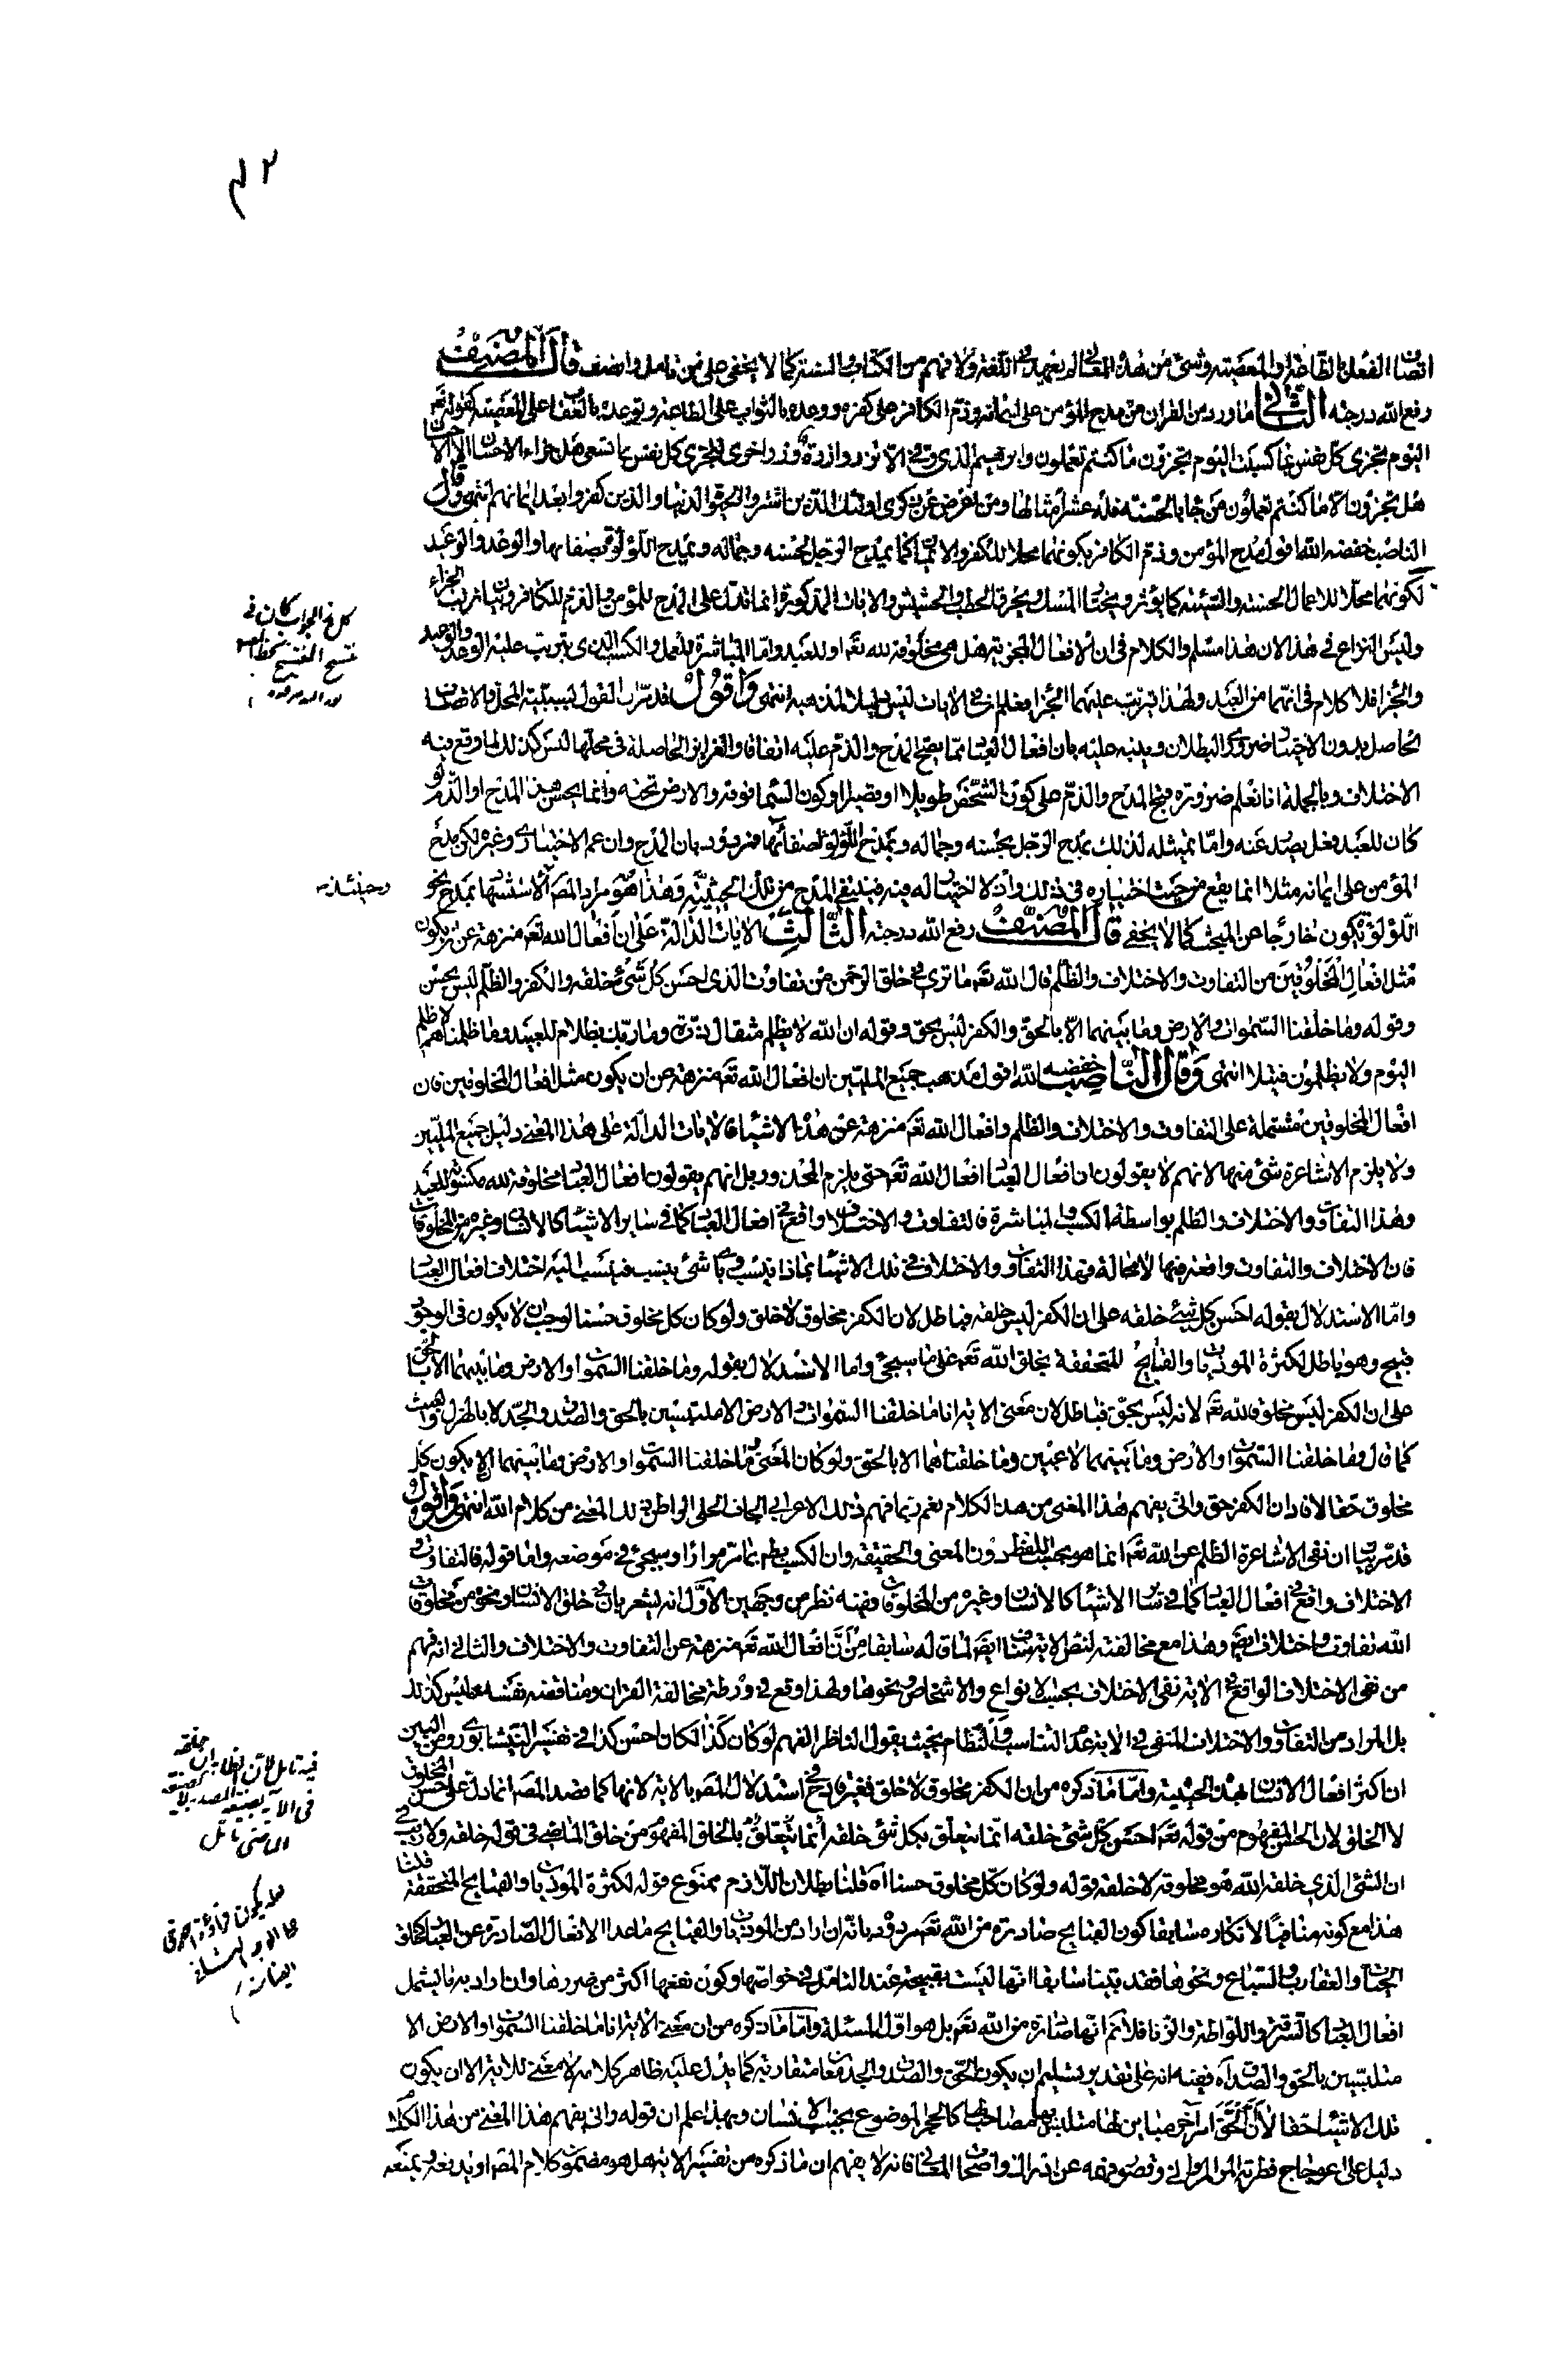 اتصاف الفعل بالطاعة او المعصية وشئ من هذه المعاني لم يعهد في اللغة ولا فهم من الكتاب والسنة كما لا يخفى على من تامل وانصف قال المصنف
رفع الله درجته الثاني ما ورد من القران من مدح المؤمن على ايمانه وذم الكافر على كفره ووعده بالثواب على الطاعة وتوعده بالعقاب على المعصية كقوله تعه
اليوم تجزى كل نفس بما كسبت اليوم تجزون ما كنتم تعملون وابرهيم الذي وفى الا تزر وازرة وزر اخرى لتجزى كل نفس بما تسعى هل جزاء الاحسان الا الاحسان
هل تجزون الا ما كنتم تعملون من جاء بالحسنة فله عشر امثالها ومن اعرض عن ذكري اولئك الذين اشتروا الحيوة الدنيا والذين كفروا بعد ايمانهم انتهى وقال
الناصب خفضه الله اقول مدح المؤمن وذم الكافر بكونهما محلا للكفر والايمان كما يمدح الرجل بحسنه وجماله وتمدح اللؤلؤة بصفائها والوعد والوعيد
لكونهما محلا للاعمال الحسنة والسيئة كما يؤثر ويختار المسك ويحرق الحطب والحشيش والايات المذكورة انما تدل على المدح للمؤمن والذم للكافر وبيان ترتب الجزاء
وليس النزاع في هذا لان هذا مسلم والكلام في ان الافعال المجزية هل هي مخلوقة لله تعه او للعبد واما المباشرة للعمل والكسب الذي يترتب عليه الوعد والوعيد
والجزا فلا كلام في انهما من العبد ولهذا يترتب عليهما الجزا فعلم ان في الايات ليس دليلا لمذهبه انتهى واقول قد مر ان القول بسببية المحل بالاتصاف
الحاصل بدون الاختيار ضروري البطلان وينبه عليه بان افعال العباد مما يصح المدح والذم عليه اتفاقا والغرايز الحاصلة في محلها ليس كذلك لما وقع فيه
الاختلاف وبالجملة انا نعلم ضرورة قبح المدح والذم على كون الشخص طويلا او قصيرا او كون السماء فوقه والارض تحته وانما يحسن هذا المدح او الذم لو
كان للعبد فعل يصدر عنه واما تمثيله لذلك بمدح الرجل بحسنه وجماله وتمدح اللؤلؤة لصفائها فمردود بان المدح وان عم الاختياري وغيره لكن مدح
المؤمن على ايمانه مثلا انما يقع من حيث اختياره في ذلك واذ لا اختيار له فيه فينتفي المدح من تلك الحيثية وهذا هو مراد المصه فالاستشهاد بمدح نحو
اللؤلؤة يكون خارجا عن المبحث كما لا يخفى قال المصنف رفع الله درجته الثالث الايات الدالة على ان افعال الله تعه منزهة عن ان يكون
مثل افعال المخلوقين من التفاوت والاختلاف والظلم قال الله تعه ما ترى في خلق الرحمن من تفاوت الذي احسن كل شئ خلقه والكفر والظلم ليس بحسن
وقوله وما خلقنا السموات والارض وما بينهما الا بالحق والكفر ليس بحق وقوله ان الله لا يظلم مثقال ذرة وما ربك بظلام للعبيد وما ظلمناهم لا ظلم
اليوم ولا يظلمون فتيلا انتهى وقال الناصب خفضه الله اقول مذهب جميع المليين ان افعال الله تعه منزهة عن ان يكون مثل افعال المخلوقين فان
افعال المخلوقين مشتملة على التفاوت والاختلاف والظلم وافعال الله تعه منزهة عن هذه الاشياء فالايات الدالة على هذا المعنى دليل جميع المليين
ولا يلزم الاشاعرة شئ منها لانهم لا يقولون ان افعال العباد افعال الله تعه حتى يلزم المحذور بل انهم يقولون افعال العباد مخلوقة لله مكسوبة للعبد
وهذا التفاوت والاختلاف والظلم بواسطة الكسب والمباشرة فالتفاوت والاختلاف واقع في افعال العباد كما في ساير الاشياء كالانسان وغيره من المخلوقات
فان الاختلاف والتفاوت واقعة فيها لا محالة فهذا التفاوت والاختلاف في تلك الاشياء بماذا ينسب وبأي شئ ينسب فينسب اليه اختلاف افعال العباد
واما الاستدلال بقوله احسن كل شئ خلقه على ان الكفر ليس خلقه فباطل لان الكفر مخلوق لا خلق ولو كان كل مخلوق حسنا لوجب ان لا يكون في الوجود
قبيح وهو باطل لكثرة الموذيات والقبايح المتحققة بخلق الله تعه على ما سيجئ واما الاستدلال بقوله وما خلقنا السموات والارض وما بينهما الا بالحق
على ان الكفر ليس مخلوقا لله تعه لانه ليس بحق فباطل لان معنى الاية انا ما خلقنا السموات والارض الا ملتبسين بالحق والصدق والجد لا بالهزل والعبث
كما قال وما خلقنا السموات والارض وما بينهما لاعبين وما خلقناهما الا بالحق ولو كان المعنى ما خلقنا السموات والارض وما بينهما الا يكون كل
مخلوق حقا لافاد ان الكفر حق وانى يفهم هذا المعنى من هذا الكلام نعم ربما فهم ذلك الاعرابي الجاف الحلي الواطي ذلك المعنى من كلام الله انتهى واقول
قد مر بيان ان نفى الاشاعرة الظلم عن الله تعه انما هو بحسب اللفظ دون المعنى والحقيقة وان الكسب بط بما مر مرارا وسيجئ في موضعه واما قوله فالتفاوت و
الاختلاف واقع في افعال العباد كما في ساير الاشياء كالانسان وغيره من المخلوقات ففيه نظر من وجهين الاول انه يشعر بان في خلق الانسان ونحوه من مخلوقات
الله تفاوت واختلاف ايضا وهذا مع مخالفته لنص الاية مناف ايضا لما قاله سابقا من ان افعال الله تعه منزهة عن التفاوت والاختلاف والثاني انه فهم
من نفى الاختلاف الواقع في الاية نفى الاختلاف بحسب الانواع والاشخاص ونحوها ولهذا وقع في ورطة مخالفة القران ومناقضة نفسه وليس كذلك
بل المراد من التفاوت والاختلاف المنفى في الاية عدم التناسب والنظام بحيث يقول الناظر الفهم لو كان كذا لكان احسن كذا في تفسير النيشابوري ومن البين
ان اكثر افعال الانسان بهذه الحيثية واما ما ذكره من ان الكفر مخلوق لا خلق فغير قادح في استدلال المصه بالاية لانها كما قصد المصه انما تدل على حسن المخلوق
لا الخلق لان الحسن المفهوم من قوله تعه احسن كل شئ خلقه انما يتعلق بكل شئ خلقه انما يتعلق بالخلق المفهوم من خلق الماضي في قوله خلقه ولا ريب في
ان الشئ الذي خلقه الله هو مخلوقه لا خلقه قوله ولو كان كل مخلوق حسنا اه قلنا بطلان اللازم ممنوع قوله لكثرة الموذيات والقبايح المتحققة قلنا
هذا مع كونه منافيا لانكاره سابقا كون القبايح صادرة من الله تعه مردود بانه ان اراد من الموذيات والقبايح ما عدا الافعال الصادرة عن العباد كخلق
الحيات والعقارب والسباع ونحوها فقد بينا سابقا انها ليست قبيحة عند التامل في خواصها وكون نفعها اكثر من ضررها وان اراد به ما يشمل
افعال العباد كالسرقة واللواطة والزنا فلا نم انها صادرة من الله تعه بل هو اول المسئلة واما ما ذكره من ان معنى الاية انا ما خلقنا السموات والارض الا
متلبسين بالحق والصدق اه ففيه انه على تقدير تسليم ان يكون الحق والصدق والجد معا متقاربة كما يدل عليه ظاهر كلامه لا معنى للاية الا ان يكون
تلك الاشياء حقا لا ان الحق امر اخر مباين لها متلبس بها مصاحب لها كالحجر الموضوع بجنب الانسان وبهذا علم ان قوله وانى يفهم هذا المعنى من هذا الكلام
دليل على اعوجاج فطرته وقصور فهمه عن ادراك واضحات المعاني فانه لا يفهم ان ما ذكره من تفسير الاية هل هو مضمون كلام المصه او يدفعه ويمنعه
وحينئذ